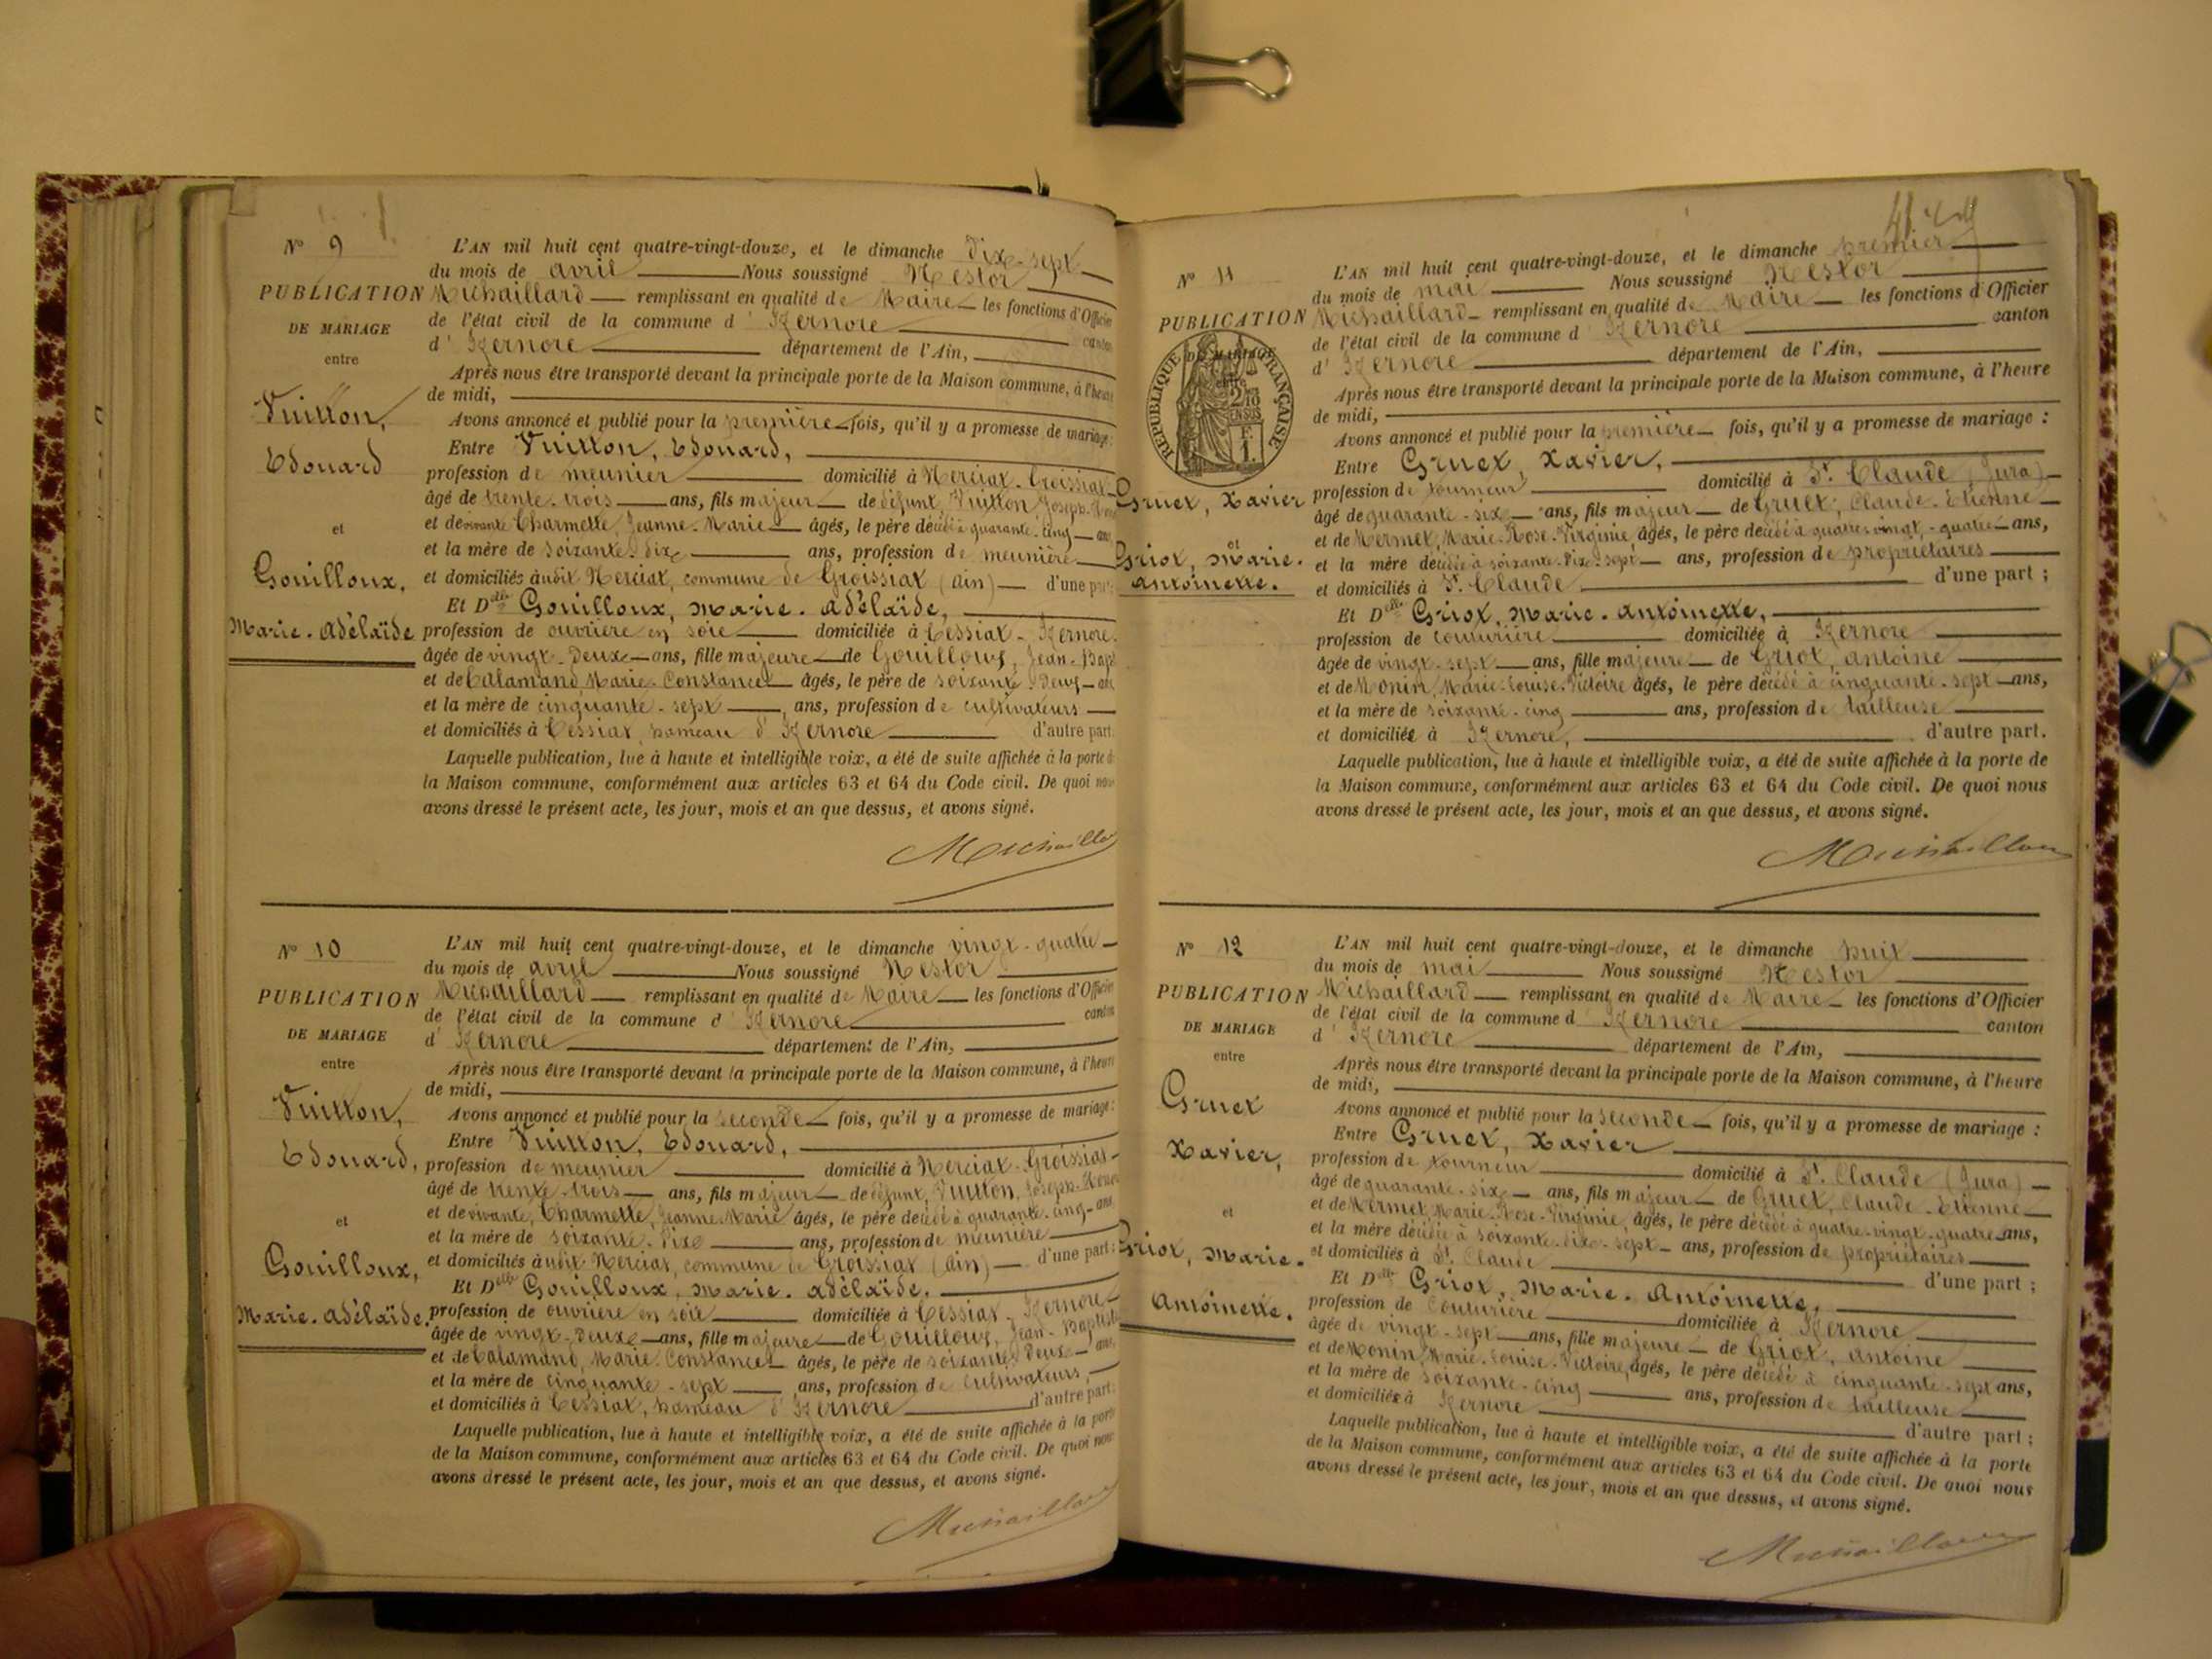 N° 9
PUBLICATION
DE MARIAGE
entre
Vuitton,
Edouard
et
Gouilloux,
Marie-Adélaïde
L'AN mil huit cent quatre-vingt-douze, et le dimanche dix-sept
du mois de avril Nous soussigné Nestor
Michaillard remplissant en qualité de Maire les fonctions d'Officier
de l'état civil de la commune d'Izernore canton
d'Izernore département de l'Ain,
Après nous être transporté devant la principale porte de la Maison commune, à l'heure
de midi,
Avons annoncé et publié pour la première fois, qu'il y a promesse de mariage:
Entre Vuitton, Edouard,
profession de meunier domicilié à Nerciat-Groissiat
âgé de trente-trois ans, fils majeur de défunt, Vuitton Joseph
et de vivante Charmette, Jeanne-Marie âgés, le père décédé à quarante-cinq ans
et la mère de soixante-dix ans, profession de meunière
et domiciliés audit Nerciat, commune de Groissiat (Ain) d'une part:
Et Dlle Gouilloux, Marie-Adélaïde,
profession de ouvrière en soie domiciliée à Cessiat-Izernore.
âgée de vingt-deux ans, fille majeure de Gouilloux, Jean-Bapt
et de Calamand, Marie-Constance âgés, le père de soixante-deux ans
et la mère de cinquante-sept ans, profession de cultivateurs
et domiciliés à Cessiat, hameau d'Izernore d'autre part.
Laquelle publication, lue à haute et intelligible voix, a été de suite affichée à la porte de
la Maison commune, conformément aux articles 63 et 64 du Code civil. De quoi nous
avons dressé le présent acte, les jour, mois et an que dessus, et avons signé.
Michaillard
N° 10
PUBLICATION
DE MARIAGE
entre
Vuitton,
Edouard,
et
Gouilloux,
Marie-Adélaïde.
L'AN mil huit cent quatre-vingt-douze, et le dimanche vingt-quatre
du mois de avril Nous soussigné Nestor
Michaillard remplissant en qualité de Maire les fonctions d'Officier
de l'état civil de la commune d'Izernore canton
d'Izernore département de l'Ain,
Après nous être transporté devant la principale porte de la Maison commune, à l'heure
de midi,
Avons annoncé et publié pour la seconde fois, qu'il y a promesse de mariage:
Entre Vuitton, Edouard,
profession de meunier domicilié à Nerciat-Groissiat
âgé de trente-trois ans, fils majeur de défunt, Vuitton, Joseph
et de vivante, Charmette, Jeanne-Marie âgés, le père décédé à quarante-cinq ans
et la mère de soixante-dix ans, profession de meunière
et domiciliés audit Nerciat, commune de Groissiat (Ain) d'une part:
Et Dlle Gouilloux, Marie-Adélaïde,
profession de ouvrière en soie domiciliée à Cessiat-Izernore
âgée de vingt-deux ans, fille majeure de Gouilloux, Jean-Baptiste
et de Calamand, Marie-Constance âgés, le père de soixante-deux ans,
et la mère de cinquante-sept ans, profession de cultivateurs,
et domiciliés à Cessiat, hameau d'Izernore d'autre part:
Laquelle publication, lue à haute et intelligible voix, a été de suite affichée à la porte
de la Maison commune, conformément aux articles 63 et 64 du Code civil. De quoi nous
avons dressé le présent acte, les jour, mois et an que dessus, et avons signé.
Michaillard
N° 11
PUBLICATION
DE MARIAGE
RÉPUBLIQUE FRANÇAISE
2/10
EN SUS
F.
1.
Gruet, Xavier
et
Griot, Marie-
Antoinette.
L'AN mil huit cent quatre-vingt-douze, et le dimanche premier
du mois de mai Nous soussigné Nestor
Michaillard remplissant en qualité de Maire les fonctions d'Officier
de l'état civil de la commune d'Izernore canton
d'Izernore département de l'Ain,
Après nous être transporté devant la principale porte de la Maison commune, à l'heure
de midi,
Avons annoncé et publié pour la première fois, qu'il y a promesse de mariage :
Entre Gruet, Xavier,
profession de tourneur domicilié à St Claude (Jura)
âgé de quarante-six ans, fils majeur de Gruet, Claude-Etienne
et de Mermet, Marie-Rose-Virginie, âgés, le père décédé à quatre-vingt-quatre ans,
et la mère décédée à soixante-dix-sept ans, profession de propriétaires
et domiciliés à St Claude d'une part ;
Et Dlle Griot, Marie-Antoinette,
profession de couturière domiciliée à Izernore
âgée de vingt-sept ans, fille majeure de Griot, Antoine
et de Monin, Marie-Louise-Victoire âgés, le père décédé à cinquante-sept ans,
et la mère de soixante-cinq ans, profession de tailleuse
et domiciliée à Izernore, d'autre part.
Laquelle publication, lue à haute et intelligible voix, a été de suite affichée à la porte de
la Maison commune, conformément aux articles 63 et 64 du Code civil. De quoi nous
avons dressé le présent acte, les jour, mois et an que dessus, et avons signé.
Michaillard
N° 12
PUBLICATION
DE MARIAGE
entre
Gruet
Xavier,
et
Griot, Marie-
Antoinette.
L'AN mil huit cent quatre-vingt-douze, et le dimanche huit
du mois de mai Nous soussigné Nestor
Michaillard remplissant en qualité de Maire les fonctions d'Officier
de l'état civil de la commune d'Izernore canton
d'Izernore département de l'Ain,
Après nous être transporté devant la principale porte de la Maison commune, à l'heure
de midi,
Avons annoncé et publié pour la seconde fois, qu'il y a promesse de mariage :
Entre Gruet, Xavier
profession de tourneur domicilié à St Claude (Jura)
âgé de quarante-six ans, fils majeur de Gruet, Claude-Etienne
et de Mermet, Marie-Rose-Virginie, âgés, le père décédé à quatre-vingt-quatre ans,
et la mère décédée à soixante-dix-sept ans, profession de propriétaires
et domiciliés à St Claude d'une part ;
Et Dlle Griot, Marie-Antoinette,
profession de couturière domiciliée à Izernore
âgée de vingt-sept ans, fille majeure de Griot, Antoine
et de Monin, Marie-Louise-Victoire, âgés, le père décédé à cinquante-sept ans,
et la mère de soixante-cinq ans, profession de tailleuse
et domiciliée à Izernore d'autre part ;
Laquelle publication, lue à haute et intelligible voix, a été de suite affichée à la porte
de la Maison commune, conformément aux articles 63 et 64 du Code civil. De quoi nous
avons dressé le présent acte, les jour, mois et an que dessus, et avons signé.
Michaillard